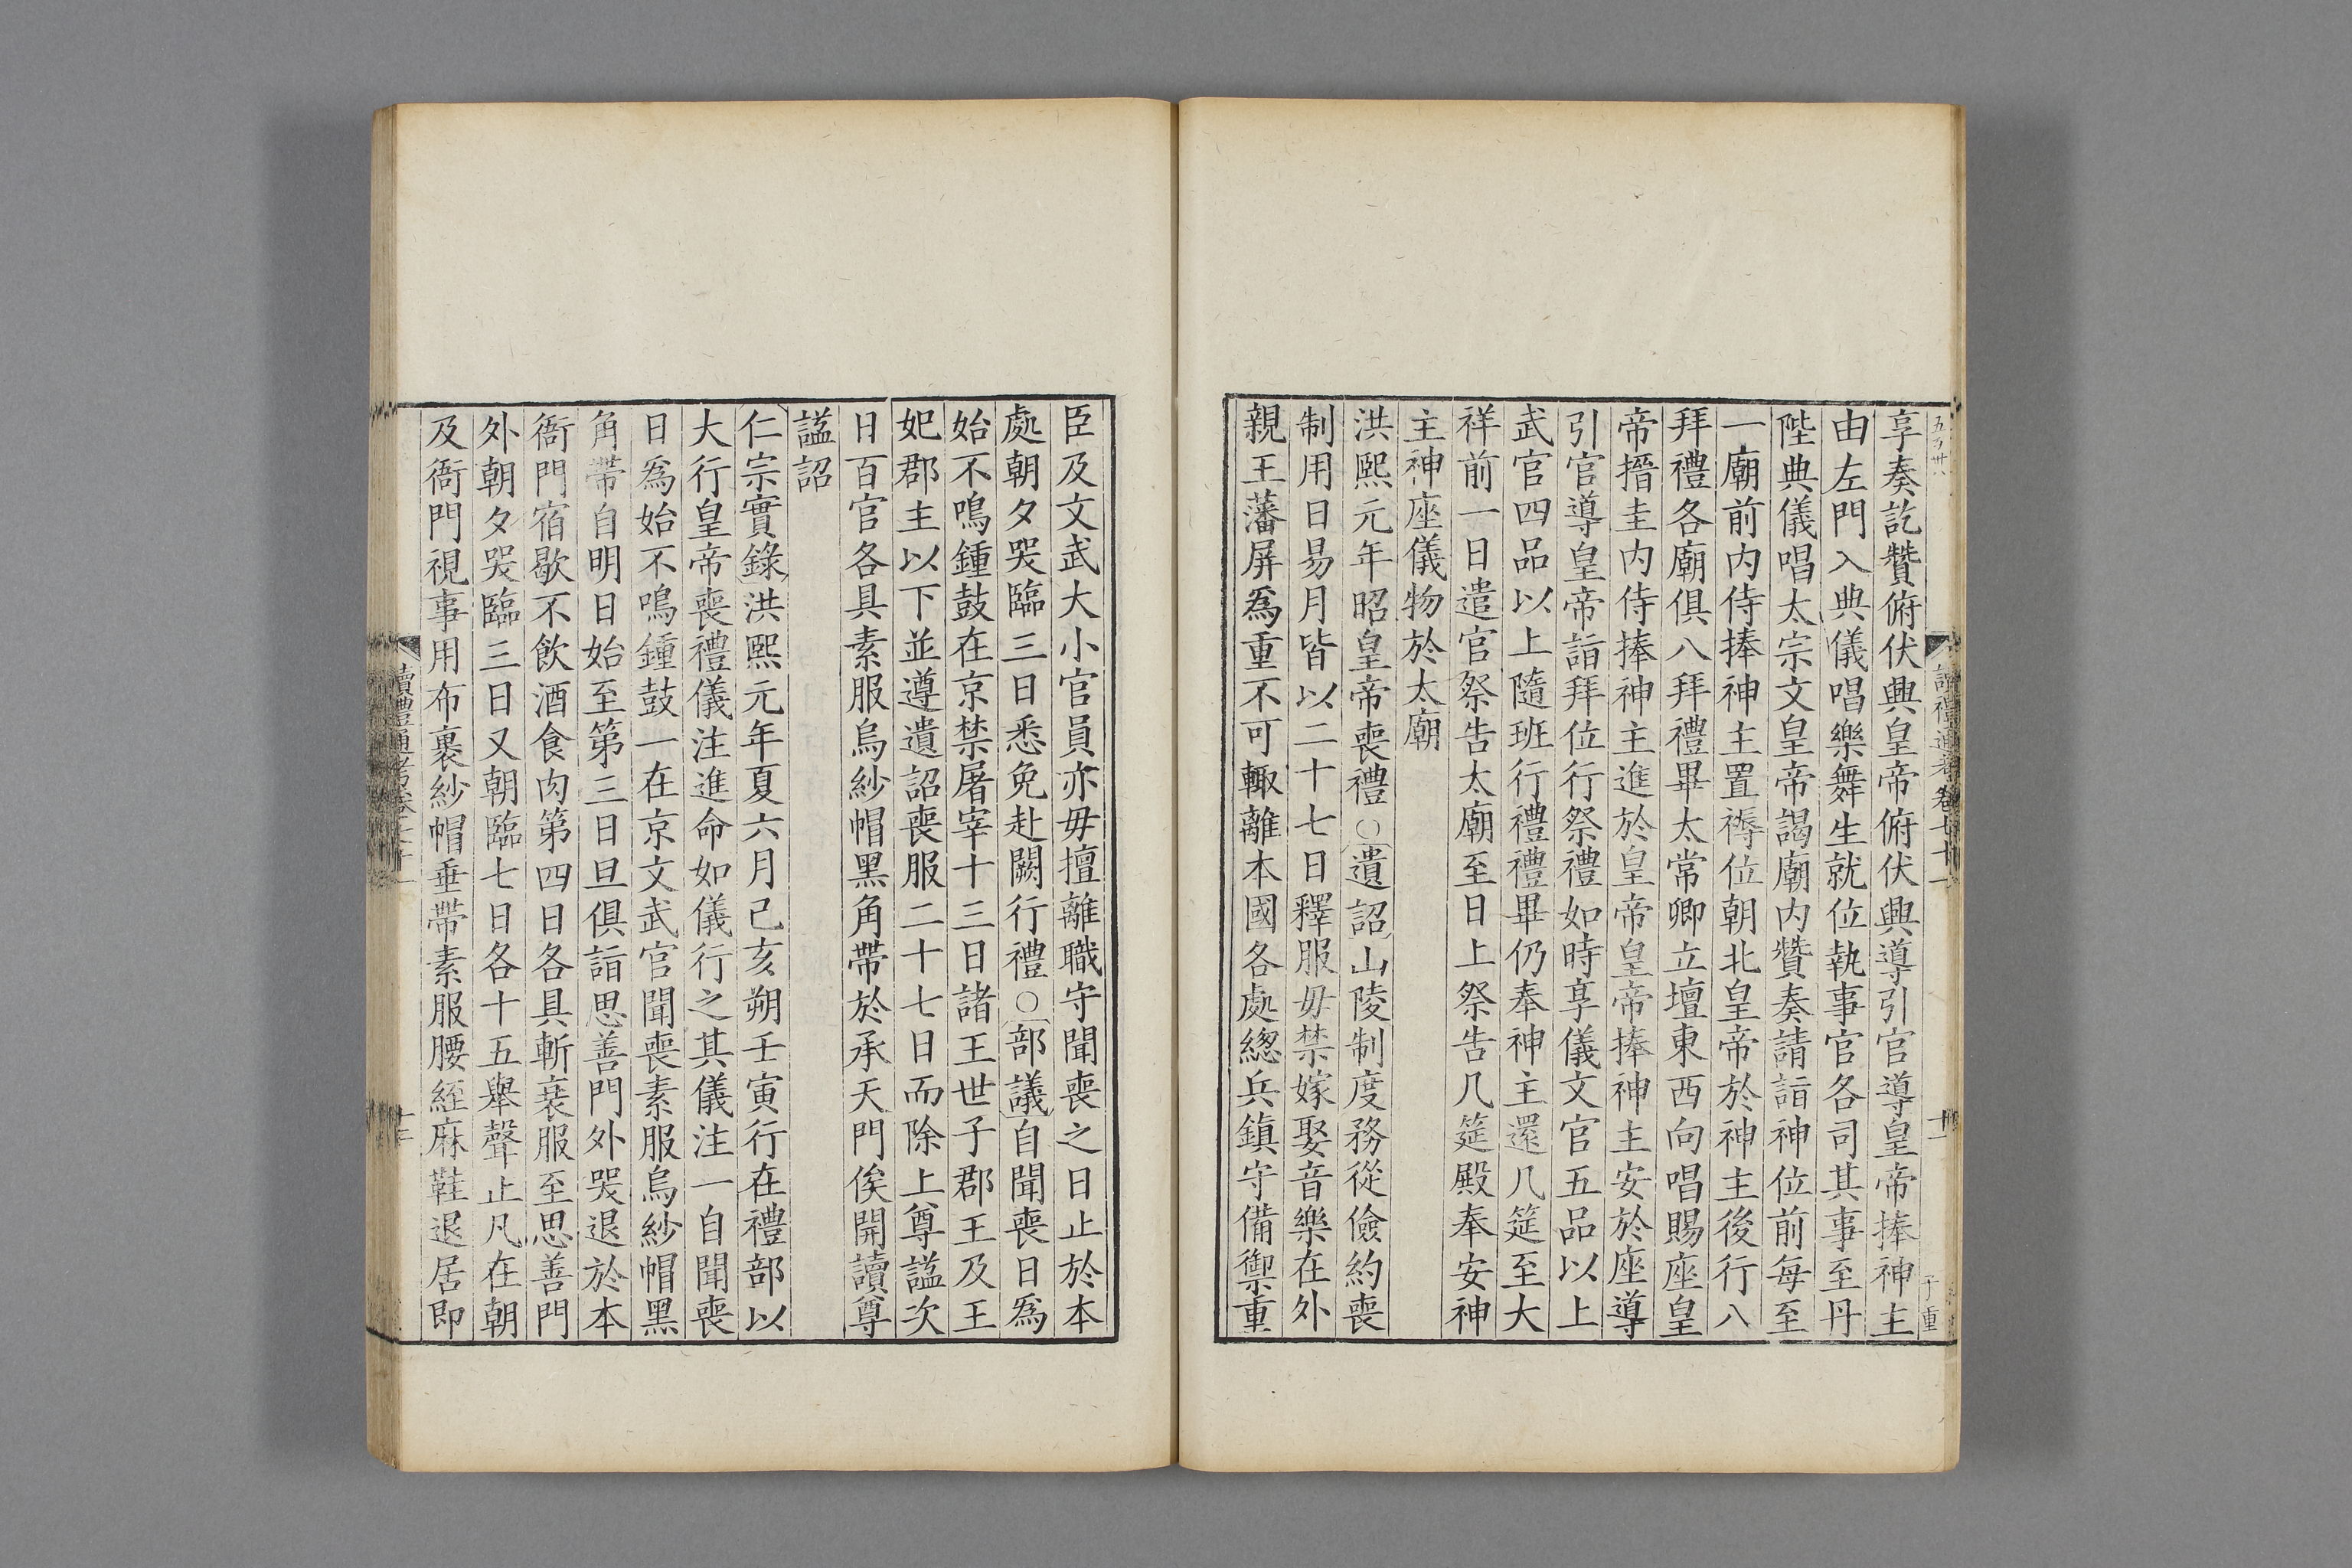 享奏訖贊俯伏興皇帝俯伏興導引官導皇帝捧神主
由左門入典儀唱樂舞生就位執事官各司其事至丹
陛典儀唱太宗文皇帝謁廟内贊奏請詣神位前每至
一廟前内侍捧神主置褥位朝北皇帝於神主後行八
拜禮各廟俱八拜禮畢太常卿立壇東西向唱賜座皇
帝搢圭内侍捧神主進於皇帝皇帝捧神主安於座導
引官導皇帝詣拜位行祭禮如時享儀文官五品以上
武官四品以上隨班行禮禮畢仍奉神主還几筵至大
祥前一日遣官祭告太廟至日上祭告几筵殿奉安神
主神座儀物於太廟
洪熙元年昭皇帝喪禮○遺詔山陵制度務從儉約喪
制用日易月皆以二十七日釋服毋禁嫁娶音樂在外
親王藩屏爲重不可輙離本國各處總兵鎮守備禦重
臣及文武大小官員亦毋擅離職守聞喪之日止於本
處朝夕哭臨三日悉免赴闕行禮○部議自聞喪日爲
始不鳴鍾鼓在京禁屠宰十三日諸王世子郡王及王
妃郡主以下並遵遺詔喪服二十七日而除上尊謚次
日百官各具素服烏紗帽黑角帶於承天門俟開讀尊
謚詔
仁宗實錄洪熙元年夏六月己亥朔壬寅行在禮部以
大行皇帝喪禮儀注進命如儀行之其儀注一自聞喪
日爲始不鳴鍾鼓一在京文武官聞喪素服烏紗帽黑
角帶自明日始至第三日旦俱詣思善門外哭退於本
衙門宿歇不飲酒食肉第四日各具斬衰服至思善門
外朝夕哭臨三日又朝臨七日各十五舉聲止凡在朝
及衙門視事用布裹紗帽垂帶素服腰絰麻鞋退居即
讀禮通考卷七十一
十二